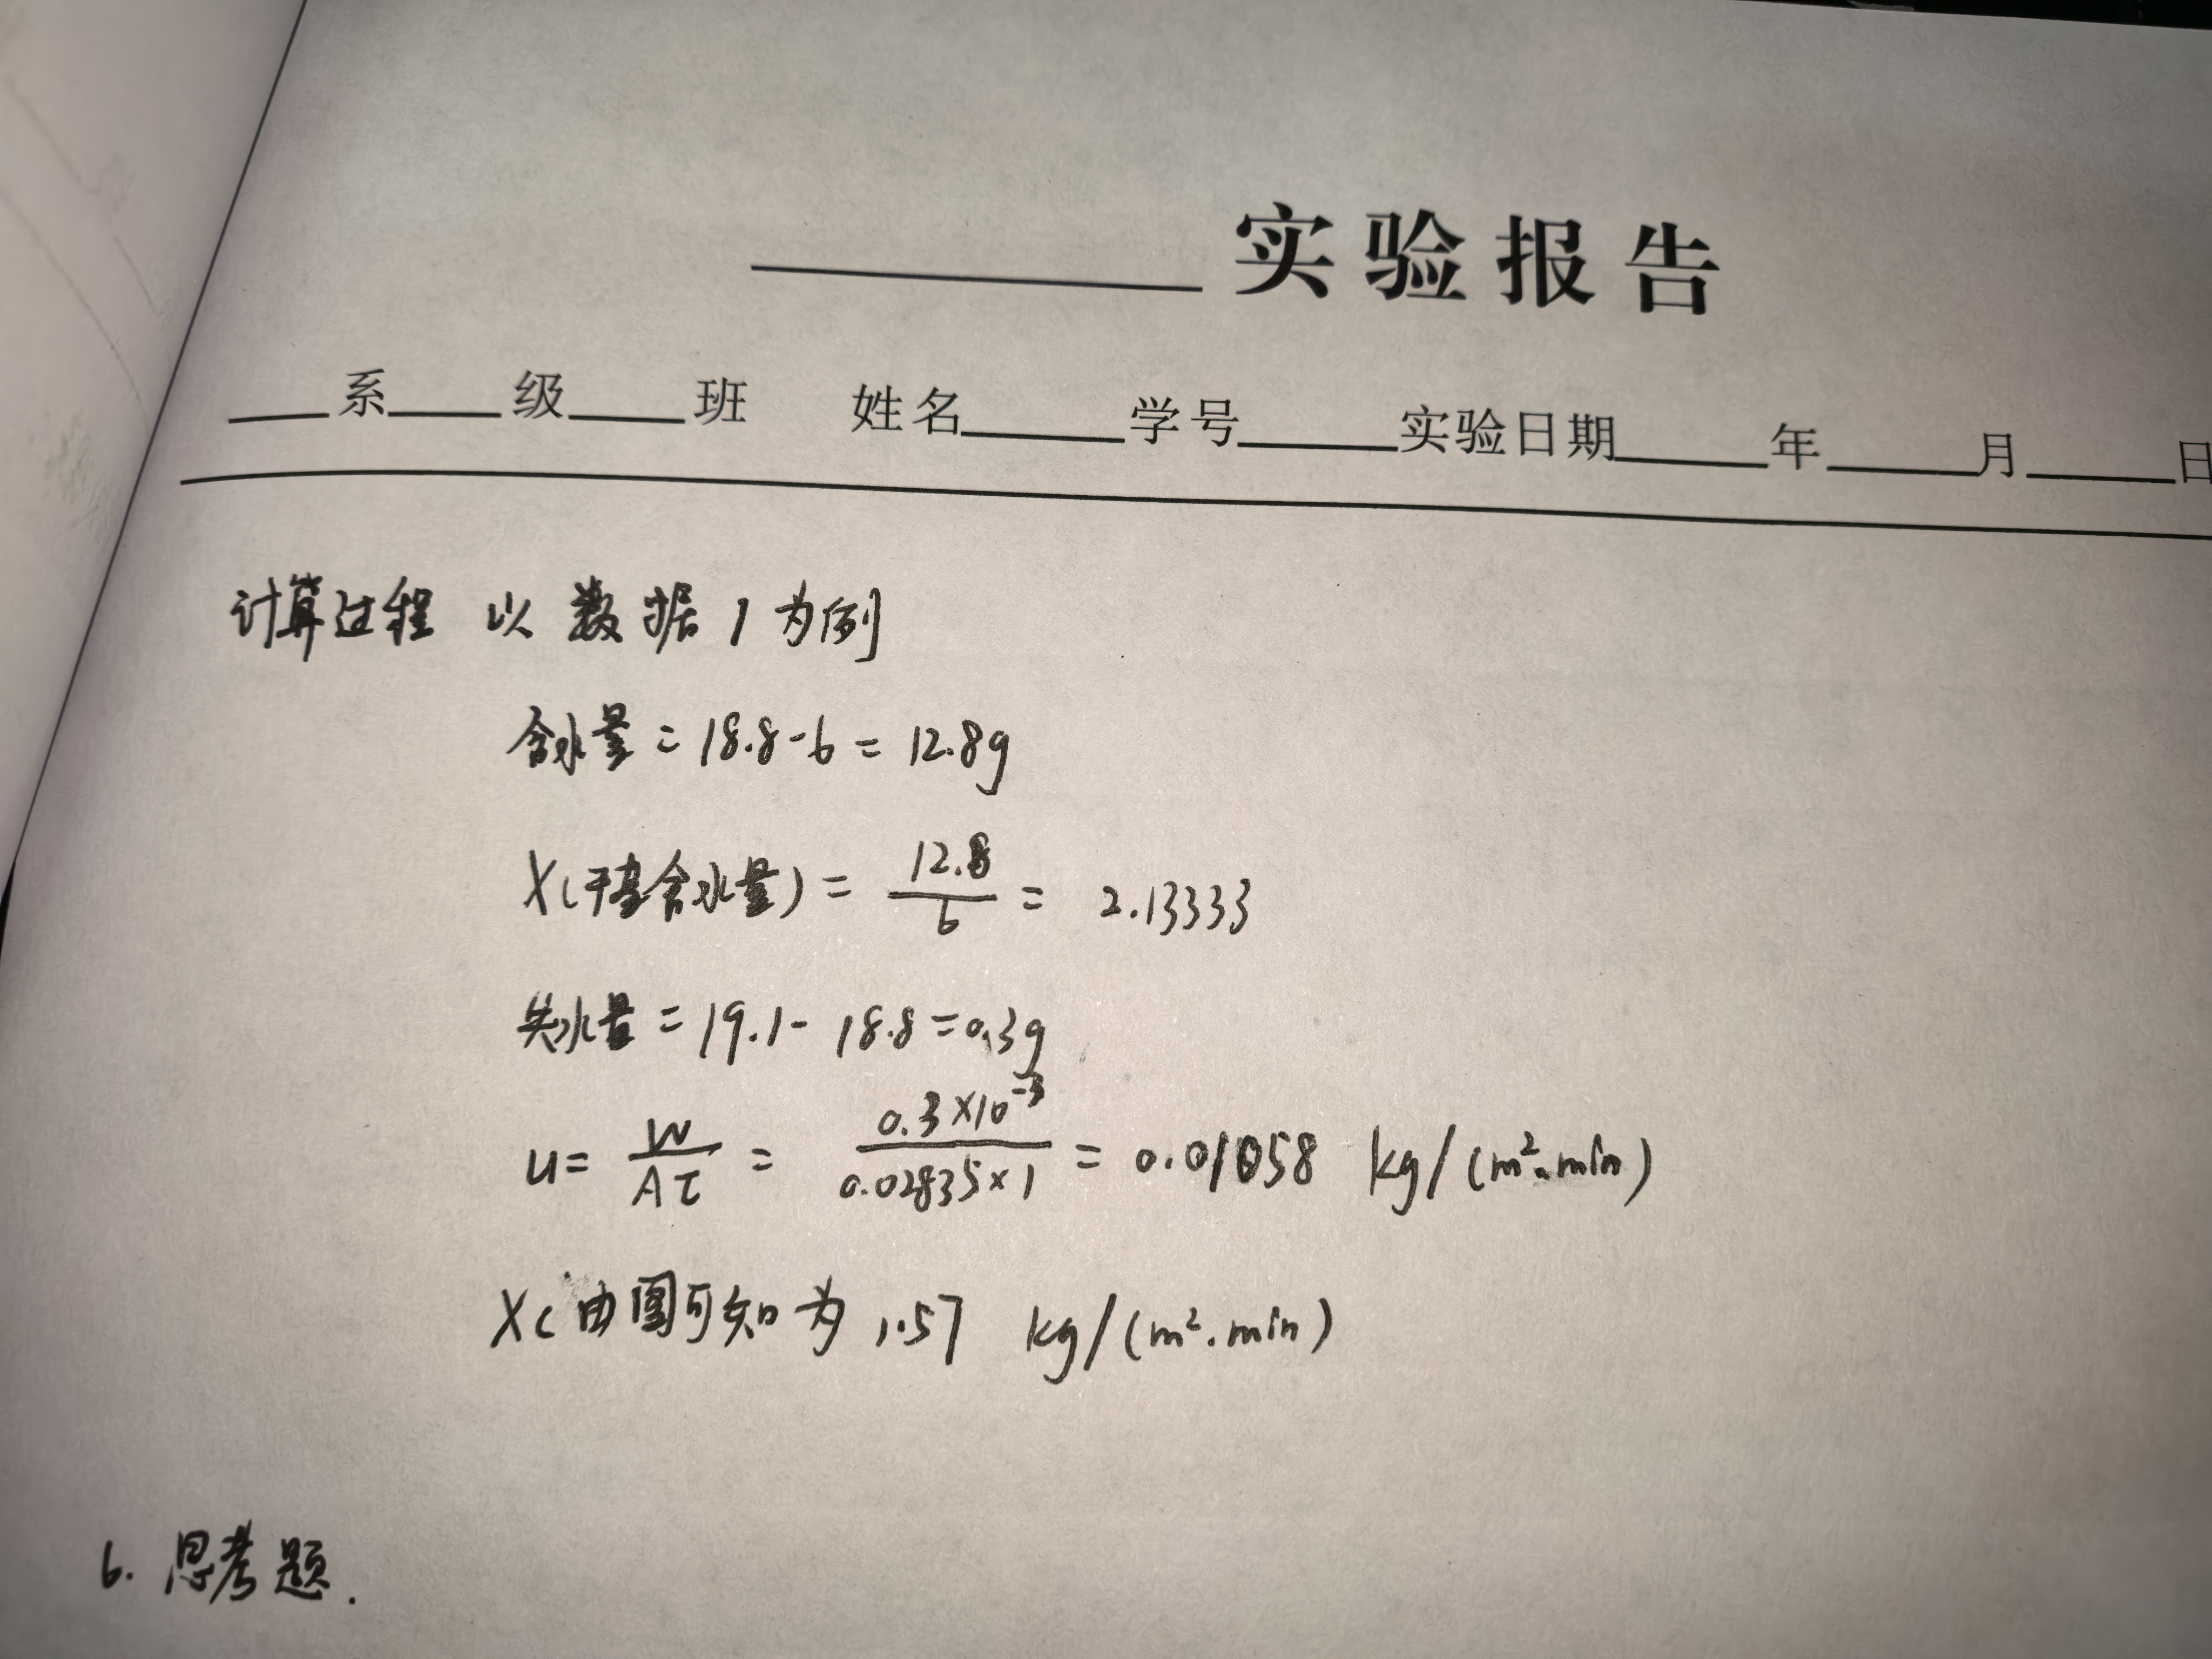 实验报告
系 级 班 姓名 学号 实验日期 年 月 日
计算过程 以数据1为例
含水量 = 18.8-6 = 12.8g
X(干基含水量) = 12.8/6 = 2.13333
失水量 = 19.1-18.8=0.3g
u= W/Aτ = 0.3×10⁻³/0.02835×1 = 0.01058 kg/(m².min)
Xc由图可知为 1.57 kg/(m².min)
6. 思考题.